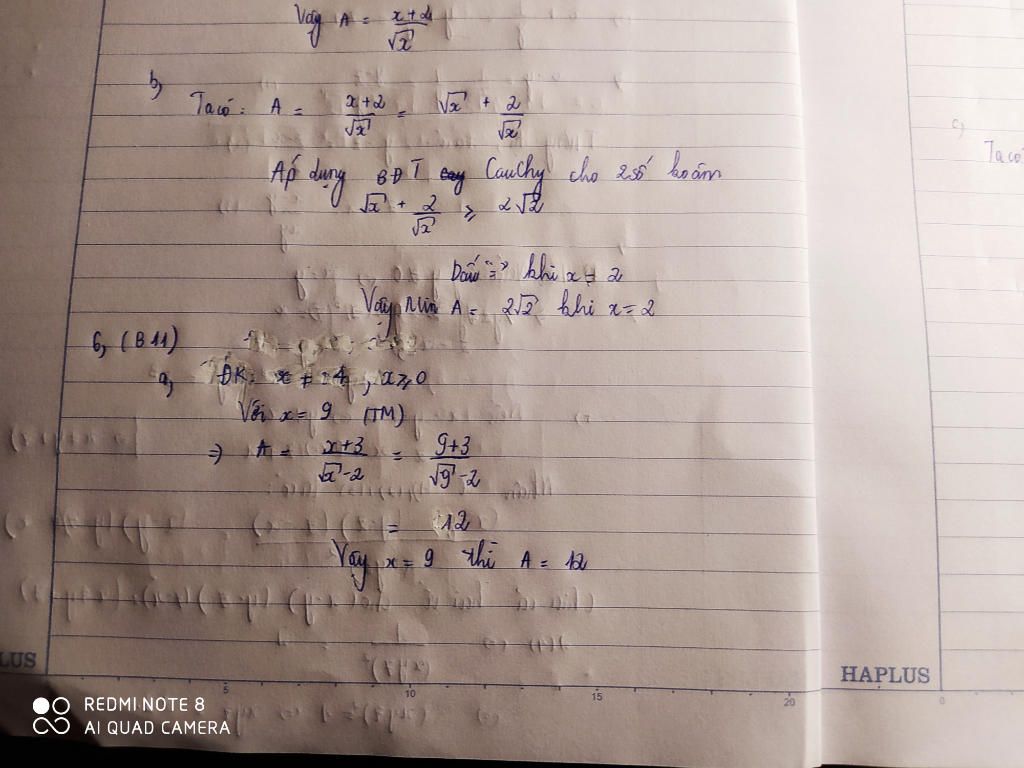 Vậy A = \frac{x+2}{\sqrt{x}}
b,
Ta có: A = \frac{x+2}{\sqrt{x}} = \sqrt{x} + \frac{2}{\sqrt{x}}
c)
Ta có
Áp dụng BĐT Cauchy cho 2 số
\sqrt{x} + \frac{2}{\sqrt{x}} ≥ 2\sqrt{2}
Dấu "=" khi x = 2
Vậy Min A = 2\sqrt{2} khi x = 2
6, (B11)
a, ĐK: x ≠ 4, x ≥ 0
Với x = 9 (TM)
=> A = \frac{x+3}{\sqrt{x}-2} = \frac{9+3}{\sqrt{9}-2}
= 12
Vậy x = 9 thì A = 12
LUS
HAPLUS
5 10 15 20 0
REDMI NOTE 8
AI QUAD CAMERA